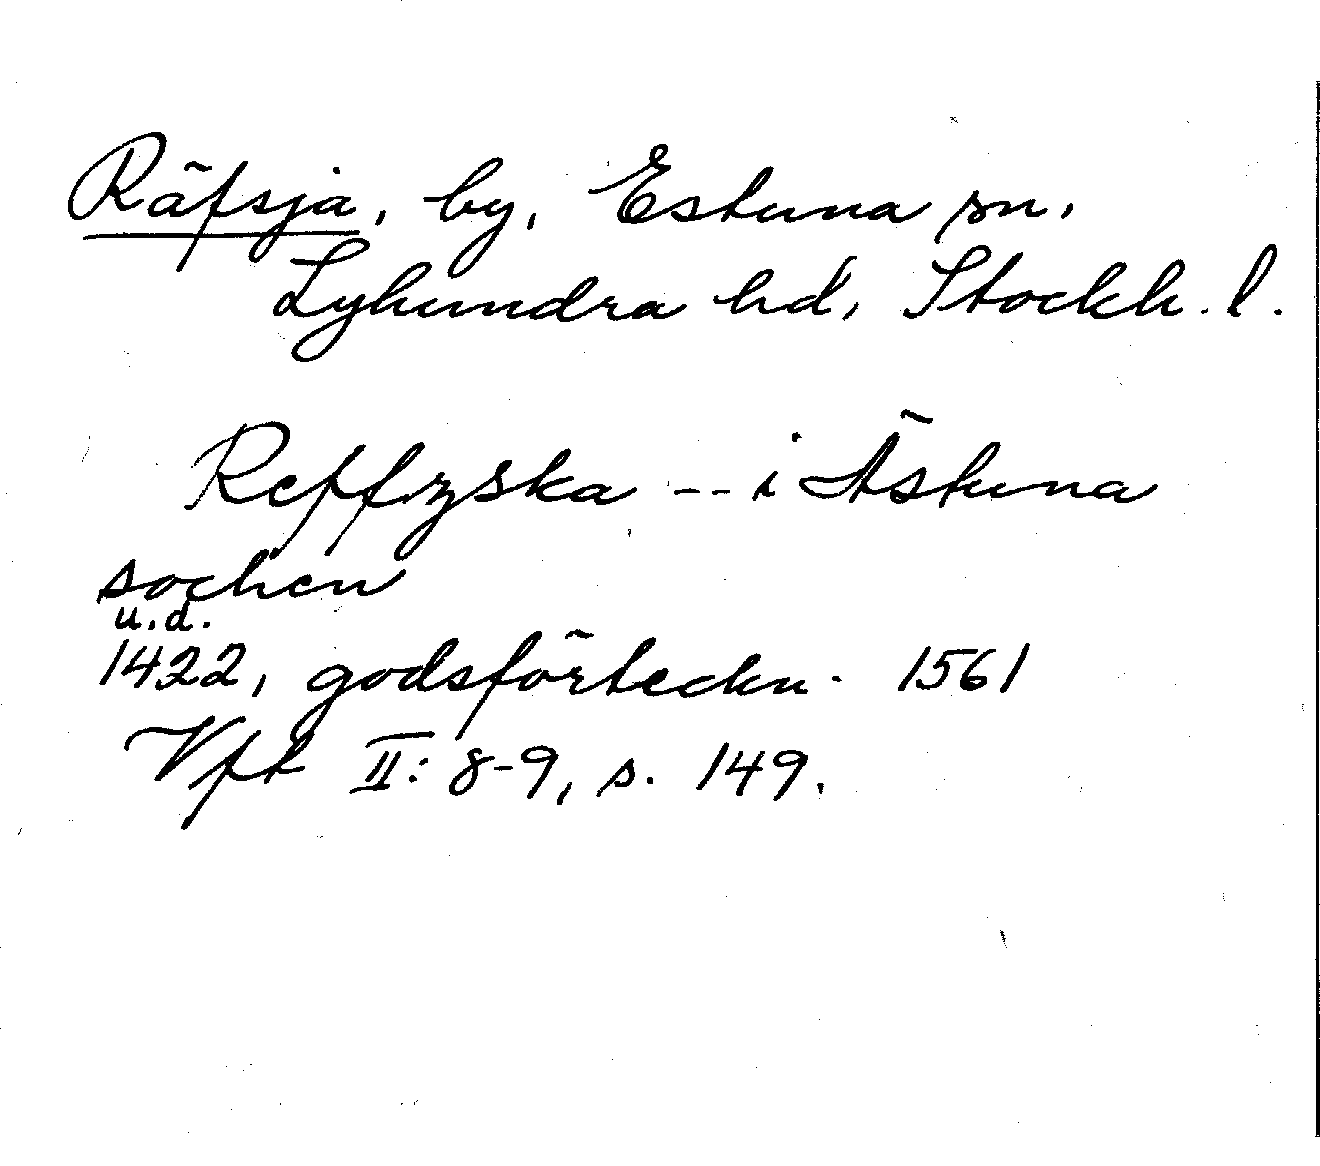 Räfsja, by, Estuna sn,
Lyhundra hd, Stockh. l.
Reffzska -- i Ästuna
sochen
u.d.
1422, godsförteckn. 1561
Vft II: 8-9, s. 149.